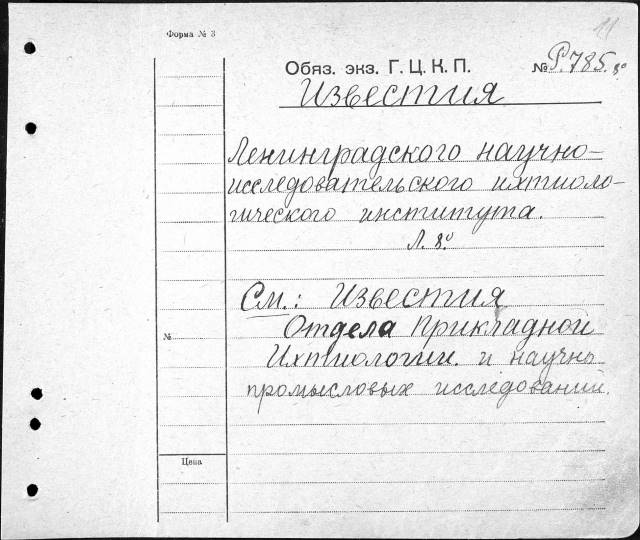 Форма № 3
11
Обяз. экз. Г. Ц. К. П. № Р.785. 8º
Известия
Ленинградского научно-
исследовательского ихтиоло-
гического института.
Л. 8º
См.: Известия
Отдела Прикладной
Ихтиологии. и научно
промысловых исследований.
№
Цена